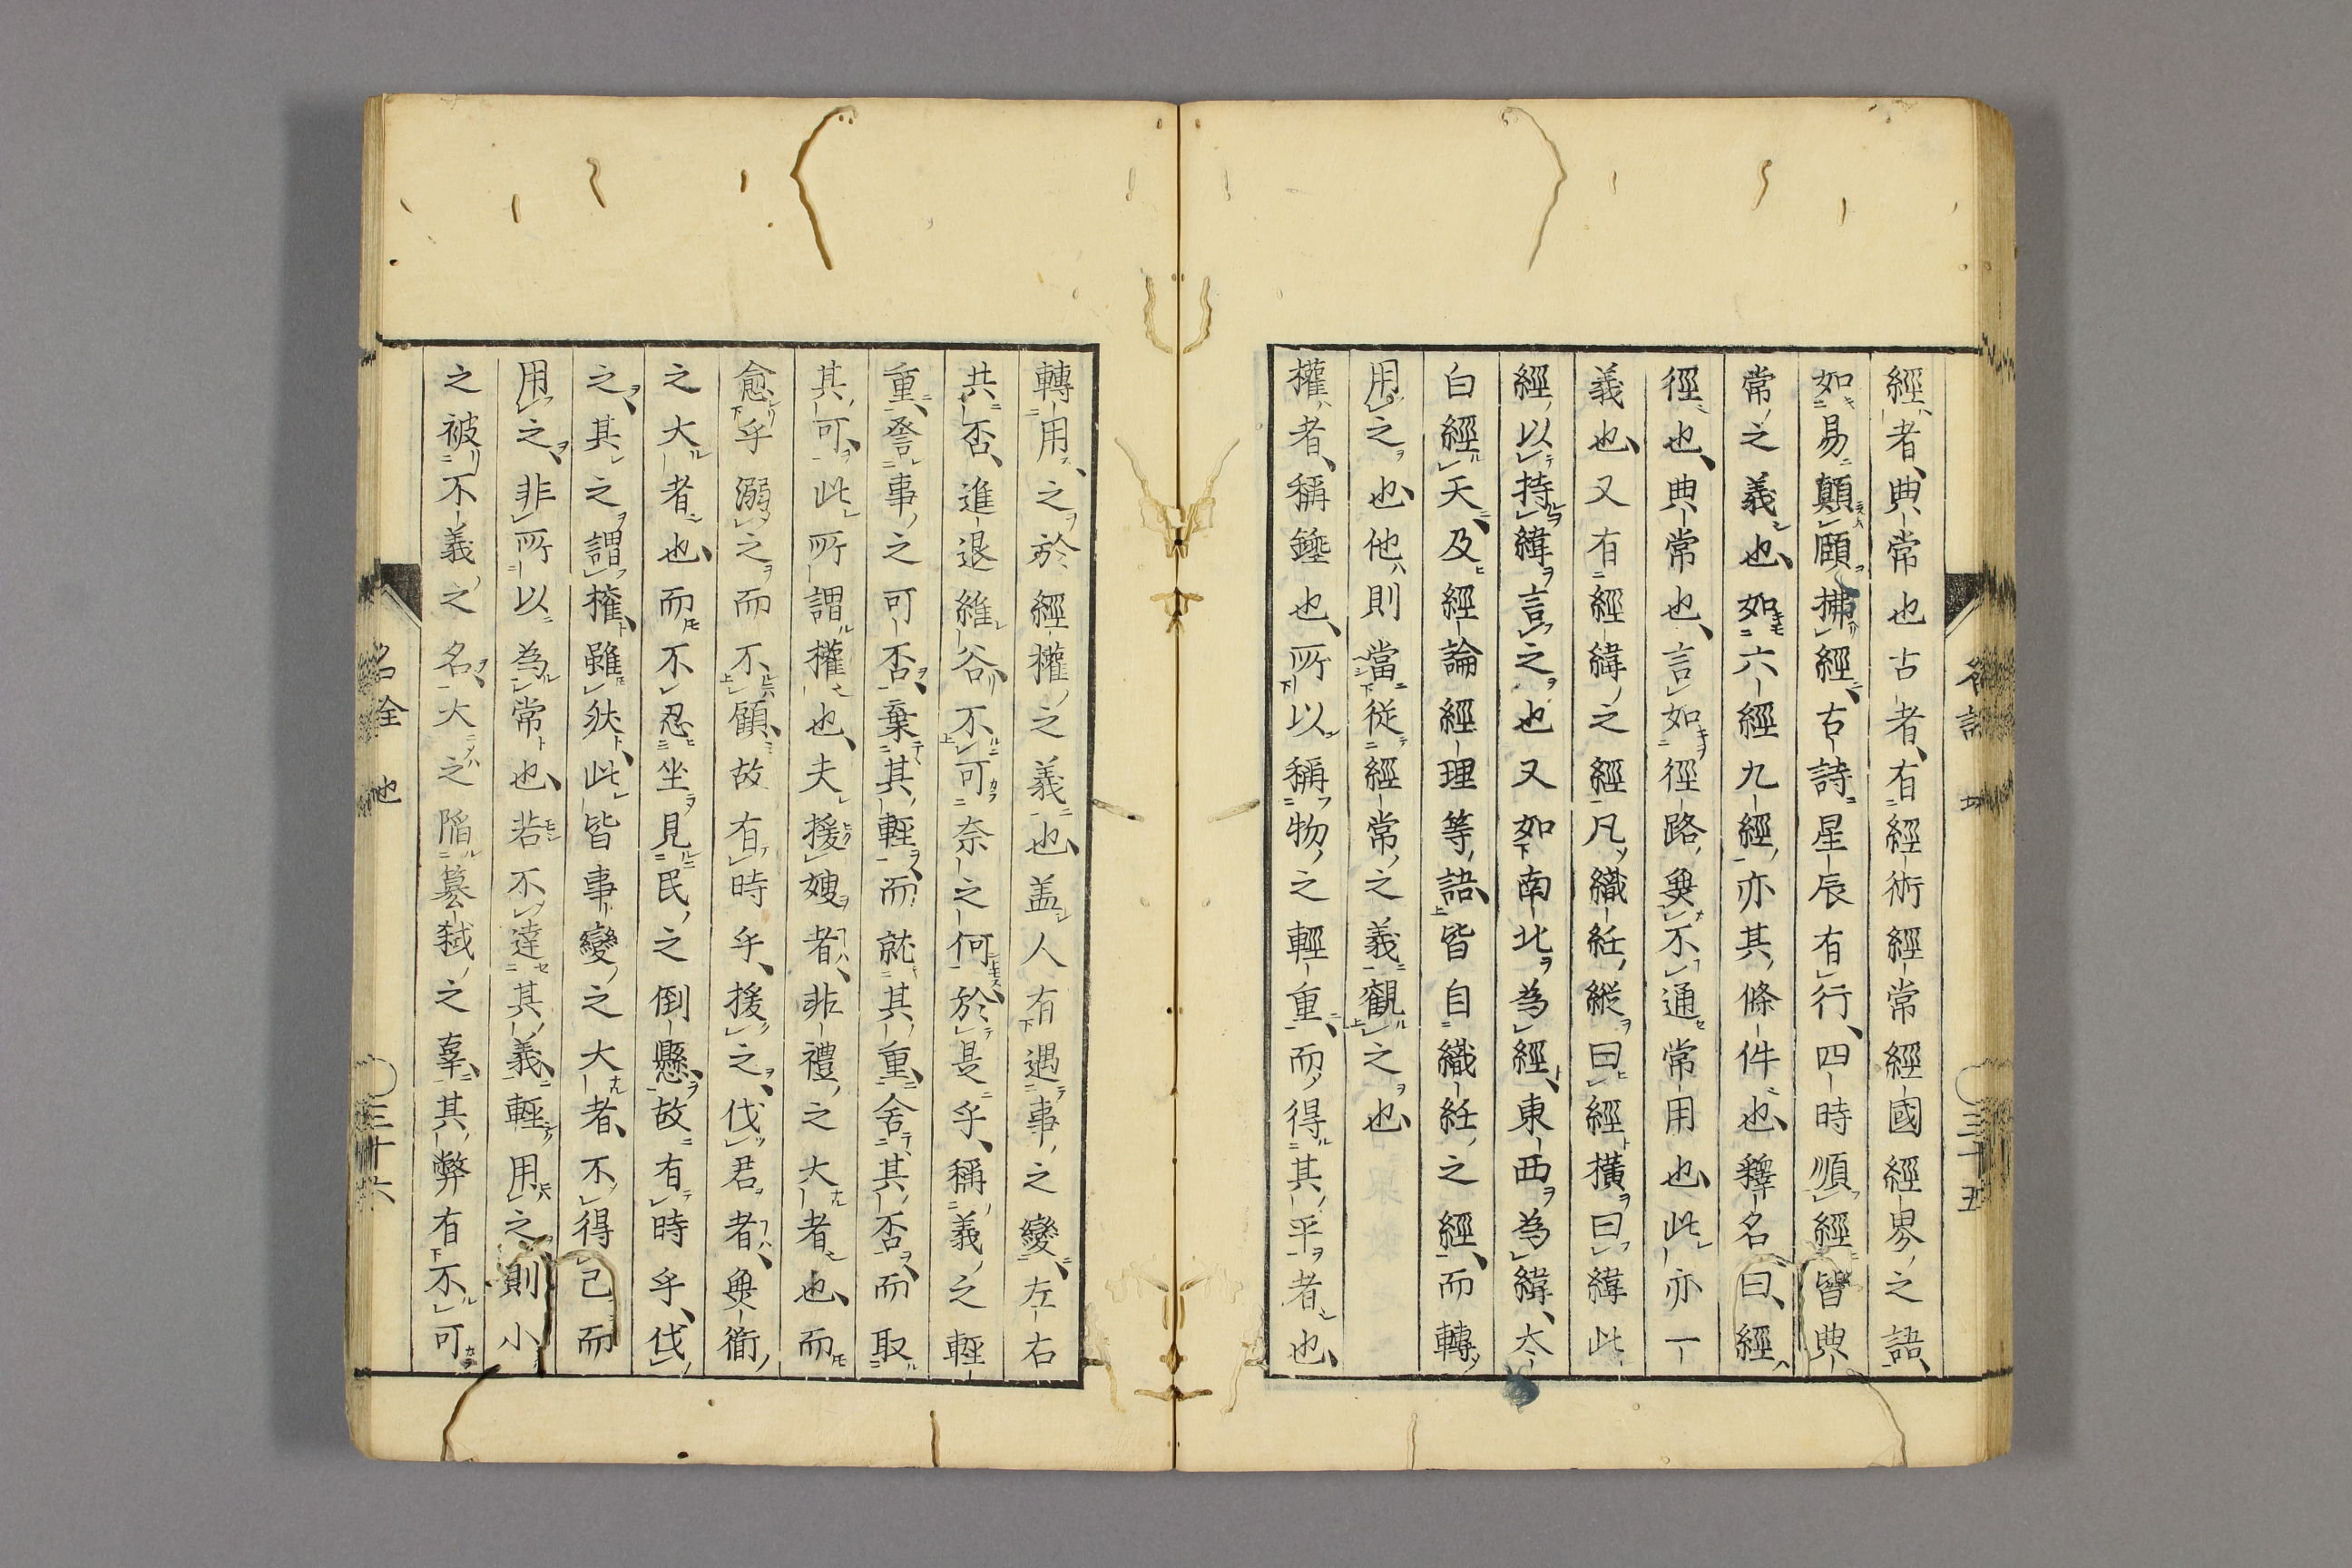 經者、典常也古者、有經術經常經國經畧之語、
如易顛頤拂經、古詩星辰有行、四時順經皆典
常之義也、如六經九經、亦其條件也、釋名曰、經
徑也、典常也、言如徑路、無不通常用也、此亦一
義也、又有經緯之經凡織紝縱曰經橫曰緯此
經以持緯言之也又如南北為經、東西為緯、大
白經天、及經論經理等語、皆自織紝之經、而轉
用之也、他則當從經常之義觀之也、
權者、稱錘也、所以稱物之輕重、而得其平者也、
三十五
轉用、之於經權之義也、盖人有遇事之變、左右
共否、進退維谷、不可奈之何、於是乎、稱義之輕
重、詧事之可否、棄其輕、而就其重、舍其否、而取
其可、此所謂權也、夫援嫂者、非禮之大者也、而
愈乎溺之而不顧、故有時乎、援之、伐君者、無道
之大者也、而不忍坐見民之倒懸、故有時乎、伐
之、其之謂權、雖然、此皆事變之大者、不得已而
用之、非所以為常也、若不達其義、輕用之則小
之被不義之名、大之陷簒弑之辜、其弊有不可
三十六